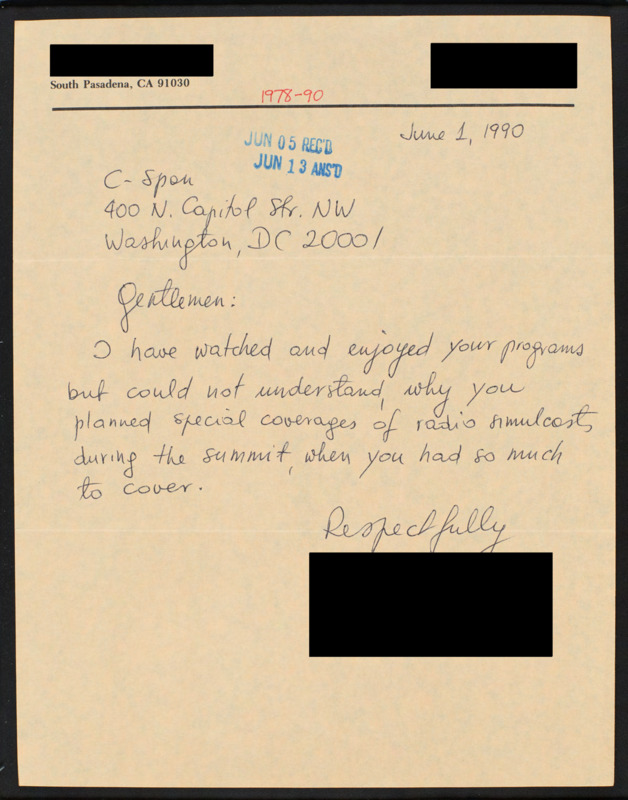 South Pasadena, CA 91030
1978-90
June 1, 1990
JUN 05 REC'D
JUN 13 ANS'D
C-Span
400 N. Capitol Str. NW
Washington, DC 20001
Gentlemen:
I have watched and enjoyed your programs
but could not understand, why you
planned special coverages of radio simulcasts,
during the summit, when you had so much
to cover.
Respectfully